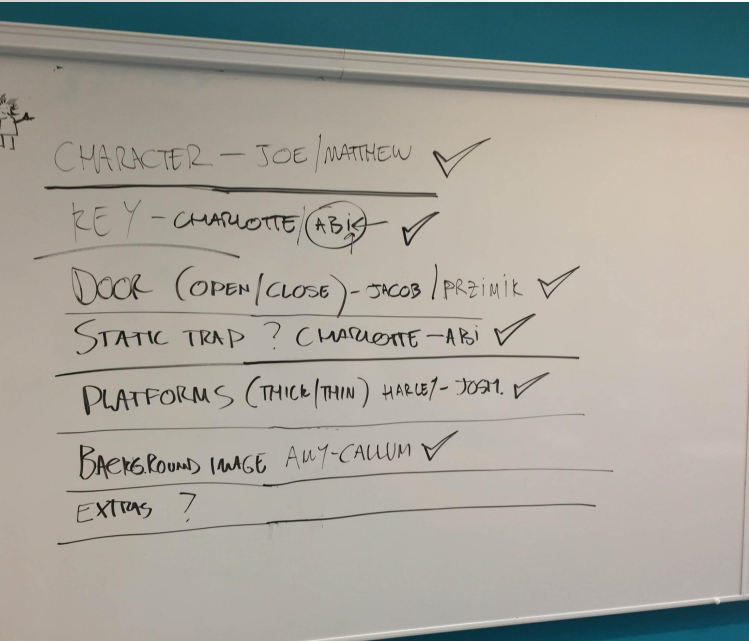 CHARACTER - JOE/MATTHEW
KEY - CHARLOTTE/ABI
DOOR (OPEN/CLOSE) - JACOB/PRZIMIK
STATIC TRAP ? CHARLOTTE - ABI
PLATFORMS (THICK/THIN) HARLEY - JOSH.
BACKGROUND IMAGE AMY - CALLUM
EXTRAS ?